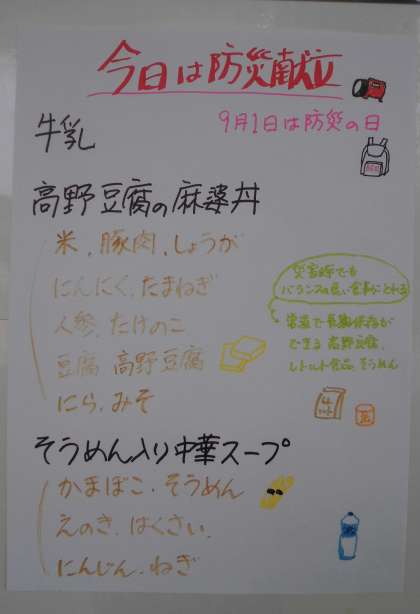 今日は防災献立
9月1日は防災の日
牛乳
高野豆腐の麻婆丼
米、豚肉、しょうが
にんにく、たまねぎ
人参、たけのこ
豆腐 高野豆腐
にら、みそ
災害時でも
バランスの良い食事がとれる
常温で長期保存が
できる 高野豆腐、
レトルト食品、そうめん
そうめん入り中華スープ
かまぼこ、そうめん
えのき、はくさい、
にんじん、ねぎ